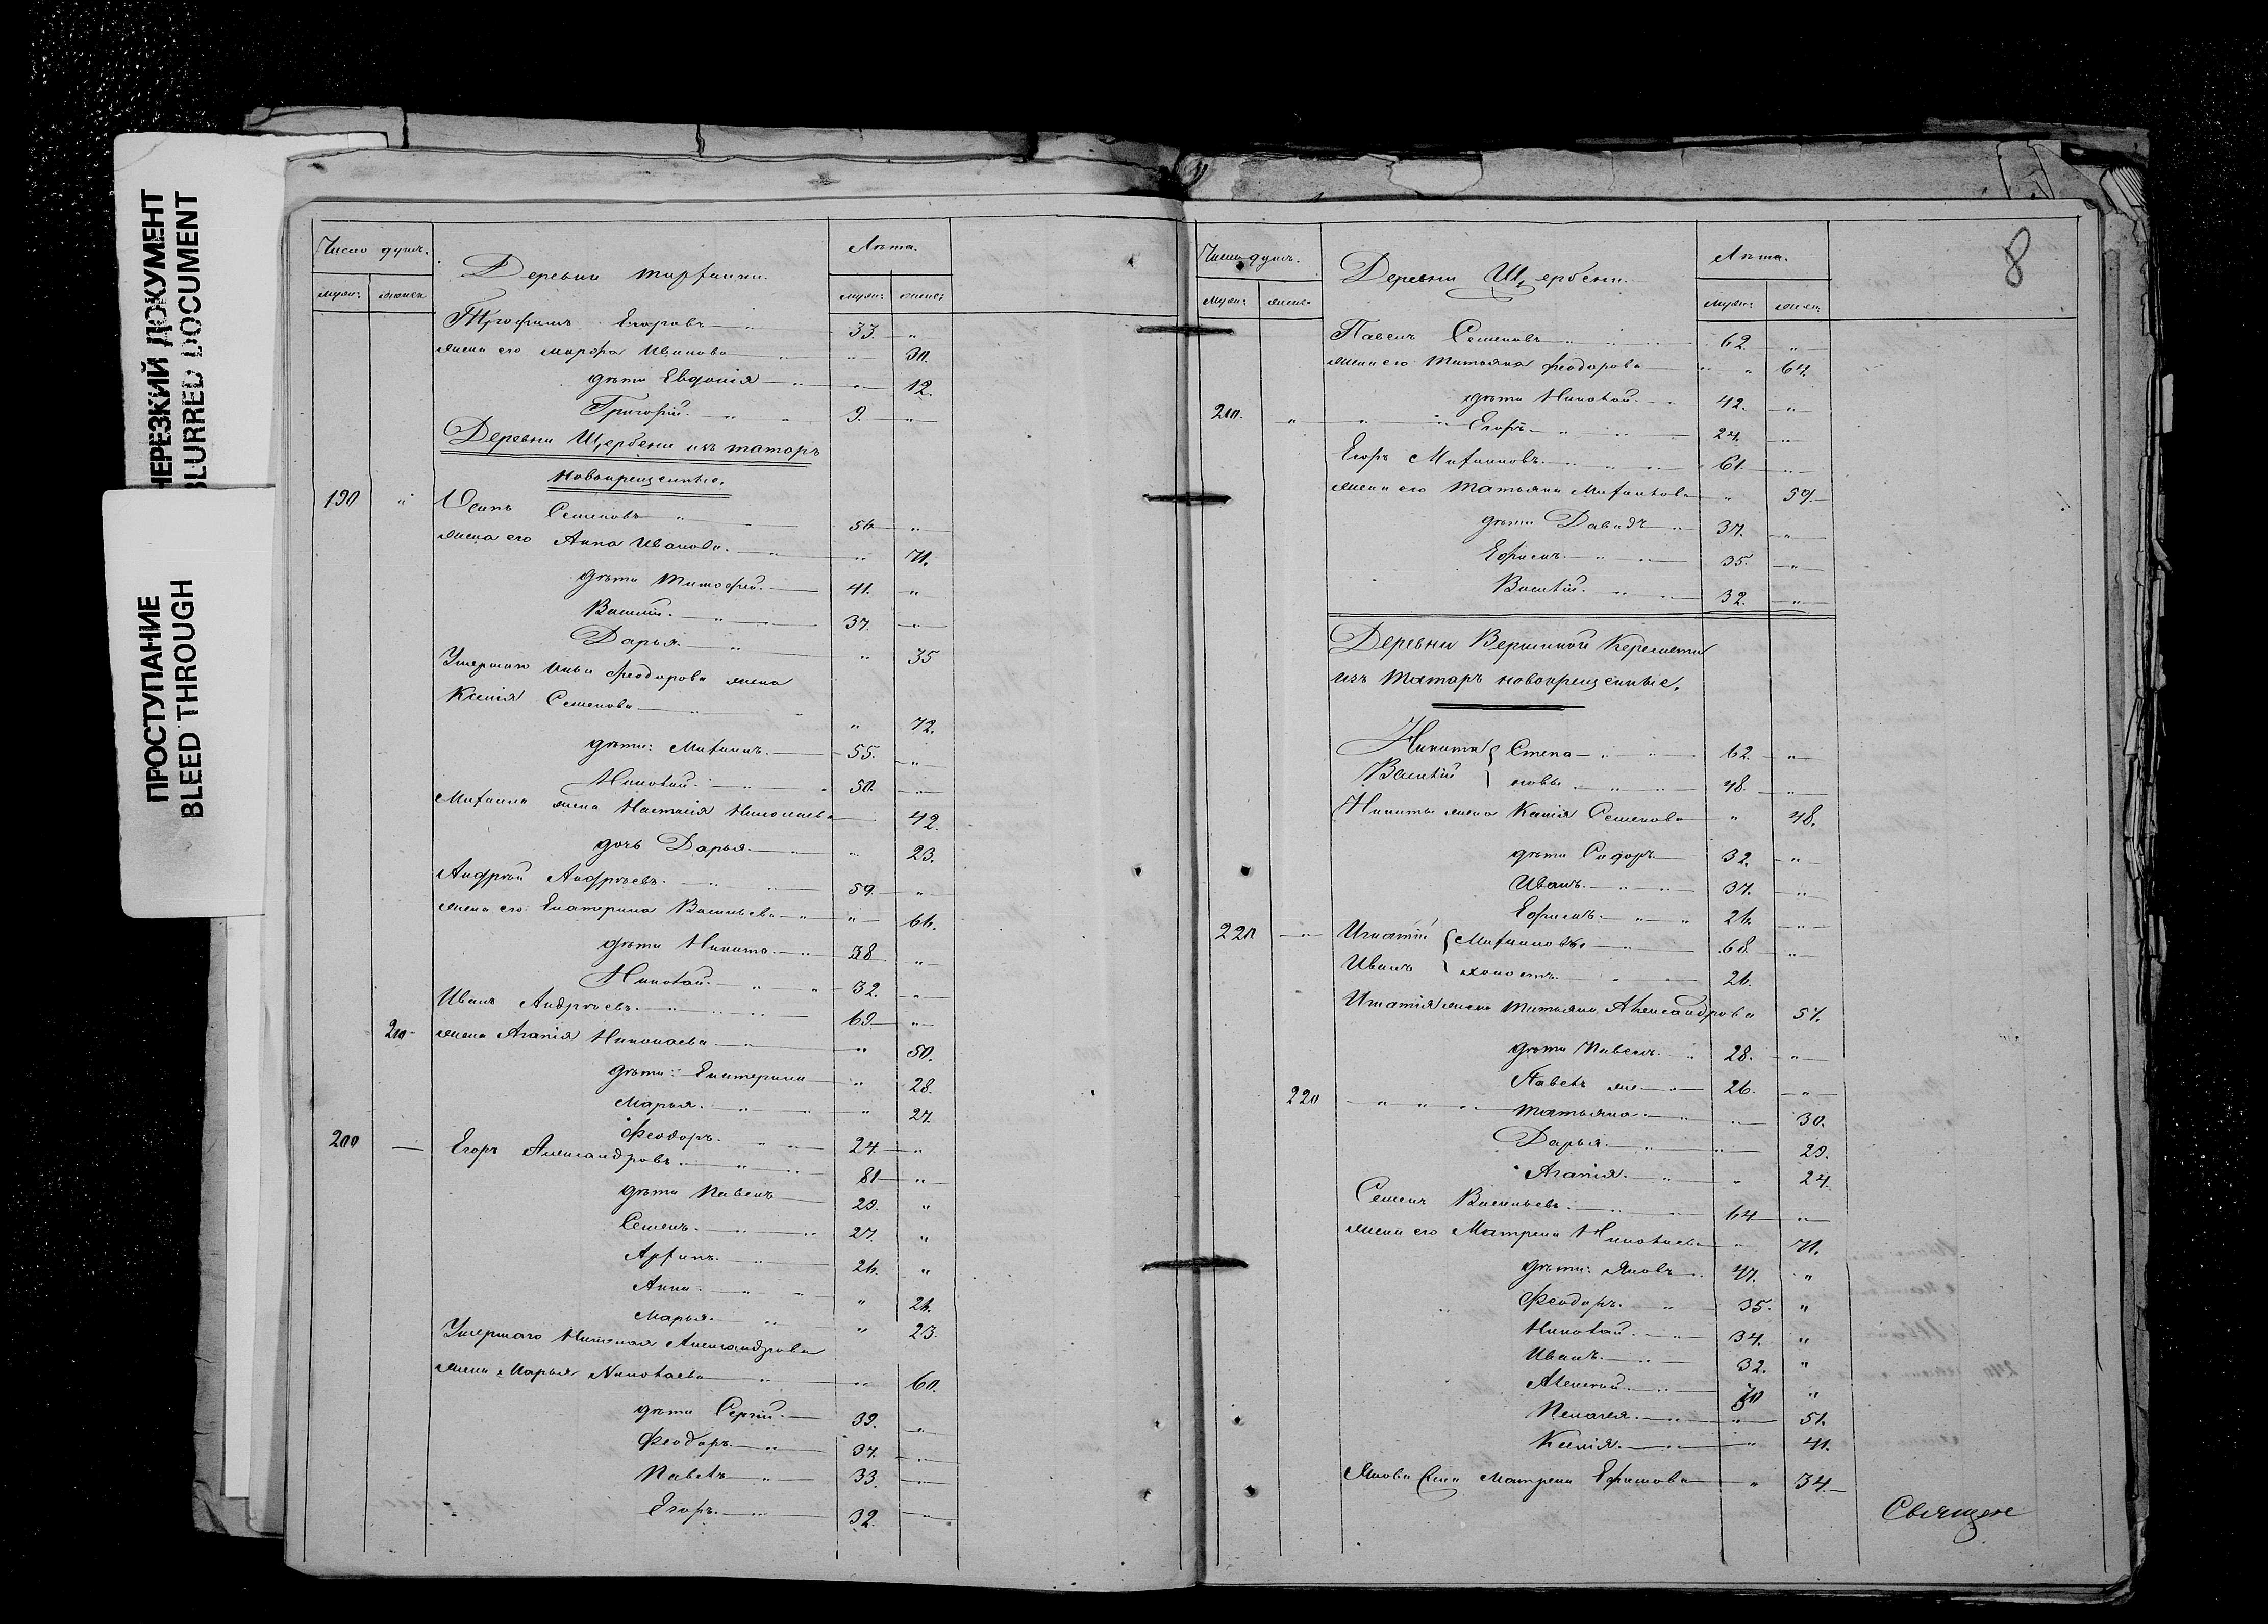 НЕРЕЗКИЙ ДОКУМЕНТ
BLURRED DOCUMENT
ПРОСТУПАНИЕ
BLEED THROUGH
Число душъ. Лѣта.
Деревни
муж: женск муж: женс:
Трофимъ Егоровъ 33. "
жена его Марфа Иванова " 30.
дѣти Евдокія " 12.
Григорій. 9. "
Деревни Щербени изъ татаръ
новокрещенные.
190 " Осипъ Семеновъ "
жена его Анна Иванова. " 71.
дѣти Тимофей. 41. "
Василій. 37. "
Дарья. " 35
Умершаго Ильи Феодорова жена
Ксенія Семенова " 72.
дѣти: Михаилъ. 55. "
Николай. 50. "
Михаила жена Настасія Николаева 42.
дочь Дарья. " 23.
Андрей Андреевъ. 59. "
жена его Екатерина Васильева " 61.
дѣти Никита. 38 "
Николай. 32. "
Иванъ Андреевъ. 69 "
210 жена Агапія Николаева " 50.
дѣти: Екатерина " 28.
Марья. " 27.
Феодоръ. 24. "
200 Егоръ Александровъ. 81 "
дѣти Павелъ 29. "
Семенъ. 27. "
Архипъ. 26. "
Анна. " 26.
Марья. " 23.
Умершаго Николая Александрова
жена Марья Николаева " 60.
дѣти Сергѣй. 39. "
Феодоръ. 37. "
Павелъ 33. "
Егоръ. 32. "
8
Число душъ. Лѣта.
Деревни Щербени.
муж: женс: муж: женс:
Павелъ Семеновъ 62. "
жена его Татьяна Феодорова " 64.
дѣти Николай. 42. "
210. " Егоръ 24. "
Егоръ Михаиловъ. 61. "
жена его Татьяна Михаилова " 59.
дѣти Давидъ 37. "
Ефимъ. 35. "
Василій. 32. "
Деревни Вершиной Керемети
изъ Татаръ новокрещенные.
Никита { Степа- 62. "
Василій новы 48. "
Никиты жена Ксенія Семенова " 48.
дѣти Сидоръ 32. "
Иванъ. 37. "
Ефимъ. 26. "
220 Игнатій { Михаиловы 68. "
Иванъ холостъ. 26.
Игнатія жена Татьяна Александрова 57.
дѣти Павелъ. 28. "
Павелъ же 26. "
220 " Татьяна. " 30.
Дарья. " 29.
Агапія. " 24.
Семенъ Васильевъ. 64 "
жена его Матрена Николаева " 71.
дѣти: Яковъ. 47. "
Феодоръ. 35. "
Николай. 34. "
Иванъ. 32. "
Алексѣй. "
Пелагея. " 51.
Ксенія. " 41.
Якова жена Матрена Ефимова " 34.
Священ